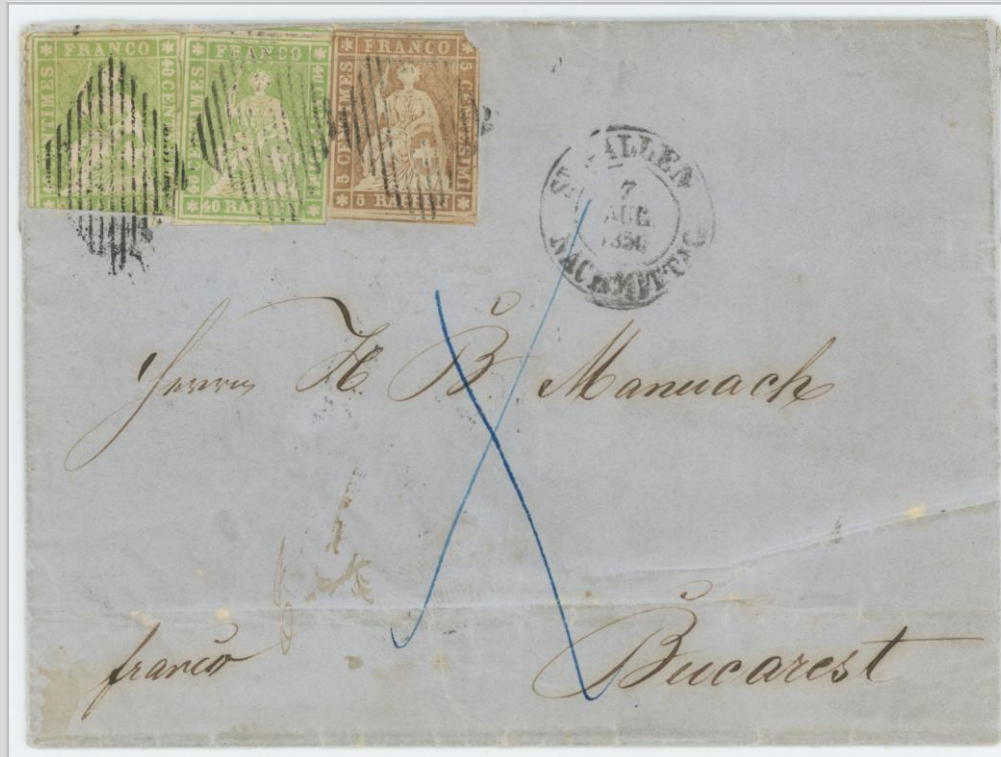 FRANCO
40 CENTIMES
FRANCO
40 CENTIMES
40 RAPPEN
FRANCO
5 CENTIMES
5 CENTIMES
5 RAPPEN
ST. GALLEN
7
AUG
1856
NACHMITTAG
Herrn H B Manuach
franco
Bucarest